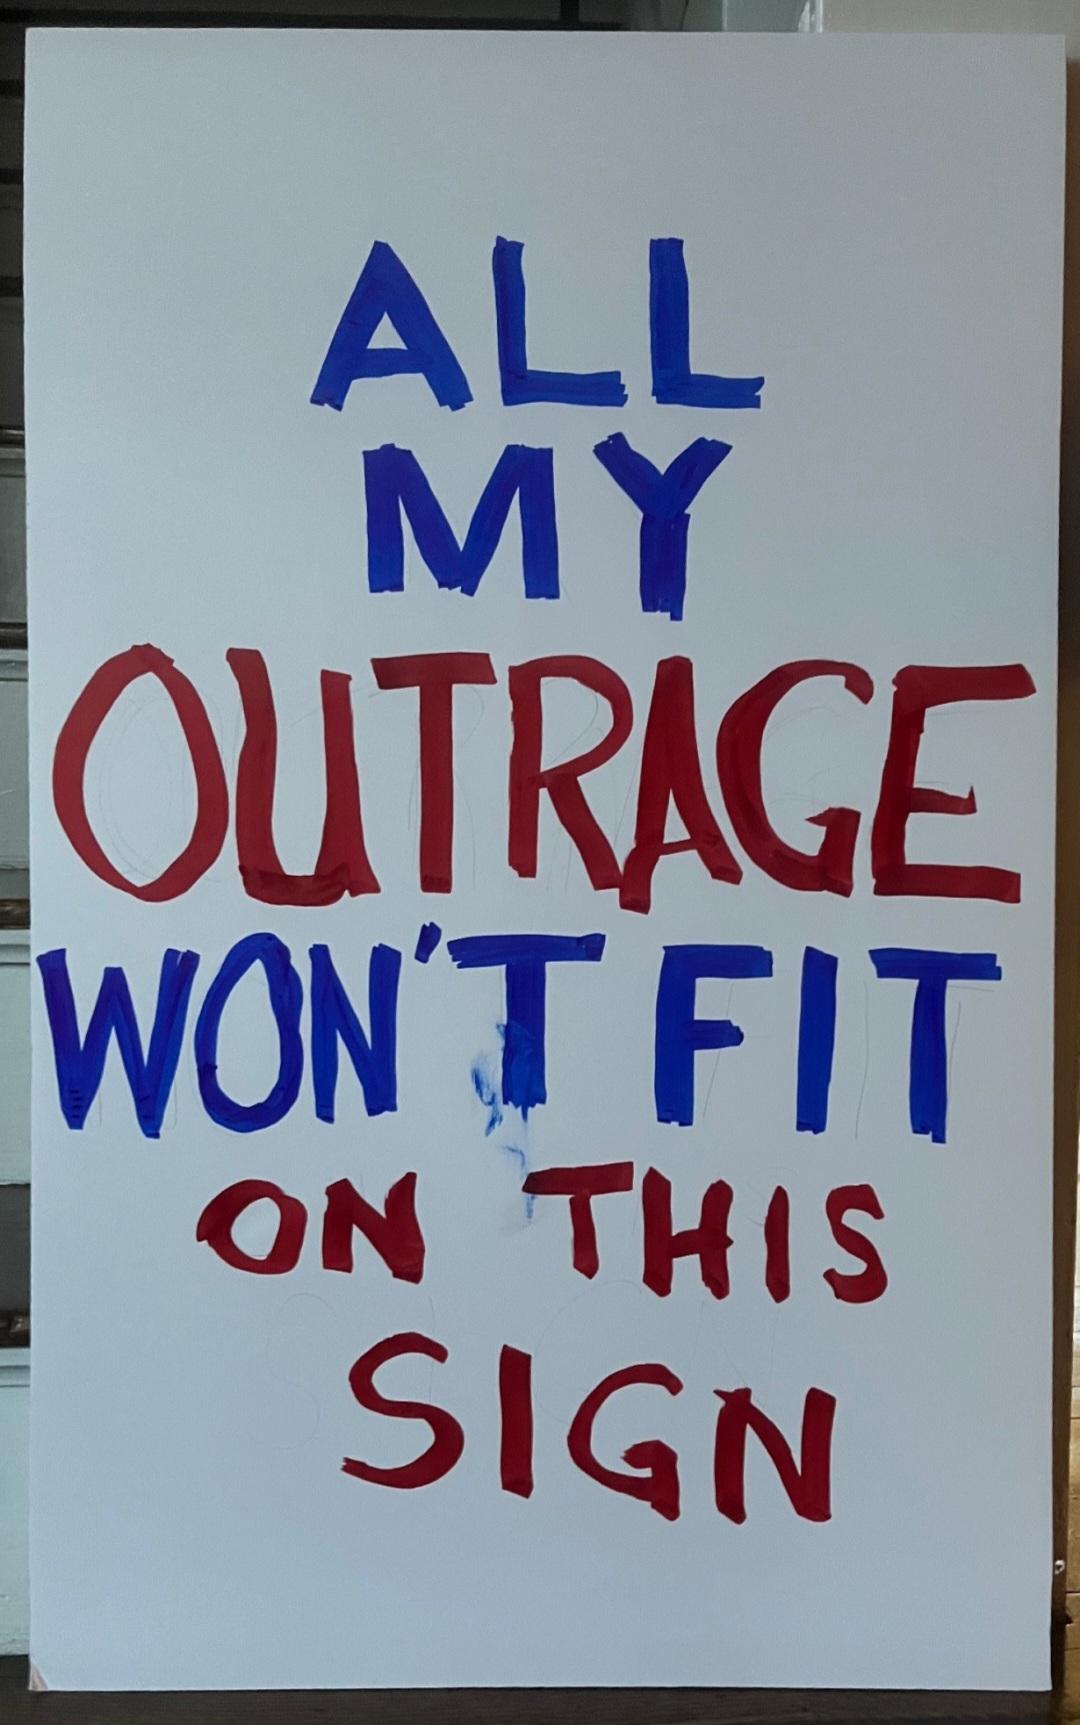 ALL
MY
OUTRAGE
WON'T FIT
ON THIS
SIGN